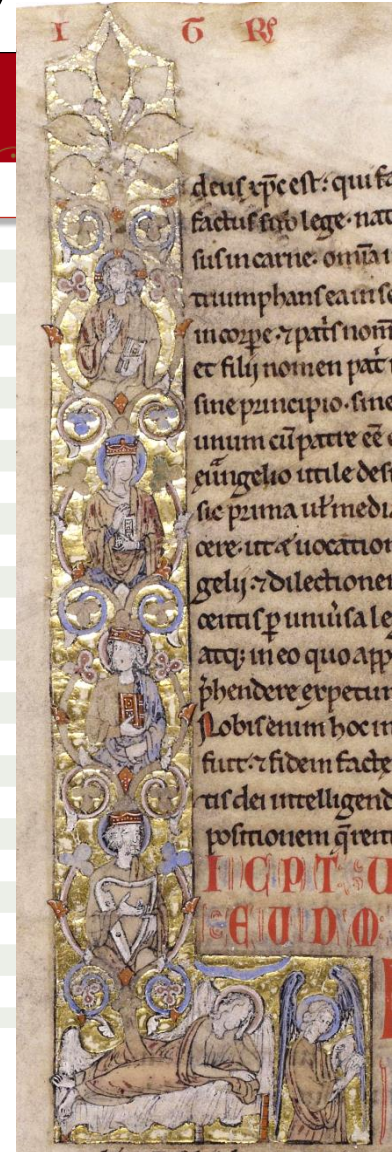 I G R
deus xp̄c est: qui fa
factus sub lege. nat
sus in carne. om̄ia i
triumphans ea in se
in corpe. ⁊ pat̄s nom
et filij nomen pat̄
sine principio. sine
unum cū patre eē
euūgelio utile des
sic prima ul̄ media
cere. ut ⁊ uocation
gelij. ⁊ dilectionem
centis p uniūsa le
atq; in eo quo app
p̄hendere expetun
Nobis enim hoc in
fuit. ⁊ fidem facte
tis dei intelligend
positionem q̄renti
I C P T U
E U D M